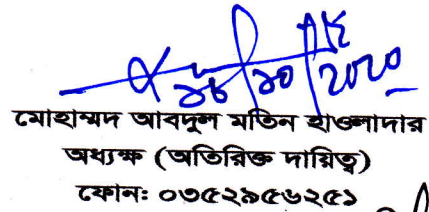 ১৮/১০/২০২০
মোহাম্মদ আবদুল মতিন হাওলাদার
অধ্যক্ষ (অতিরিক্ত দায়িত্ব)
ফোনঃ ০৩৫২৯৫৬২৫১